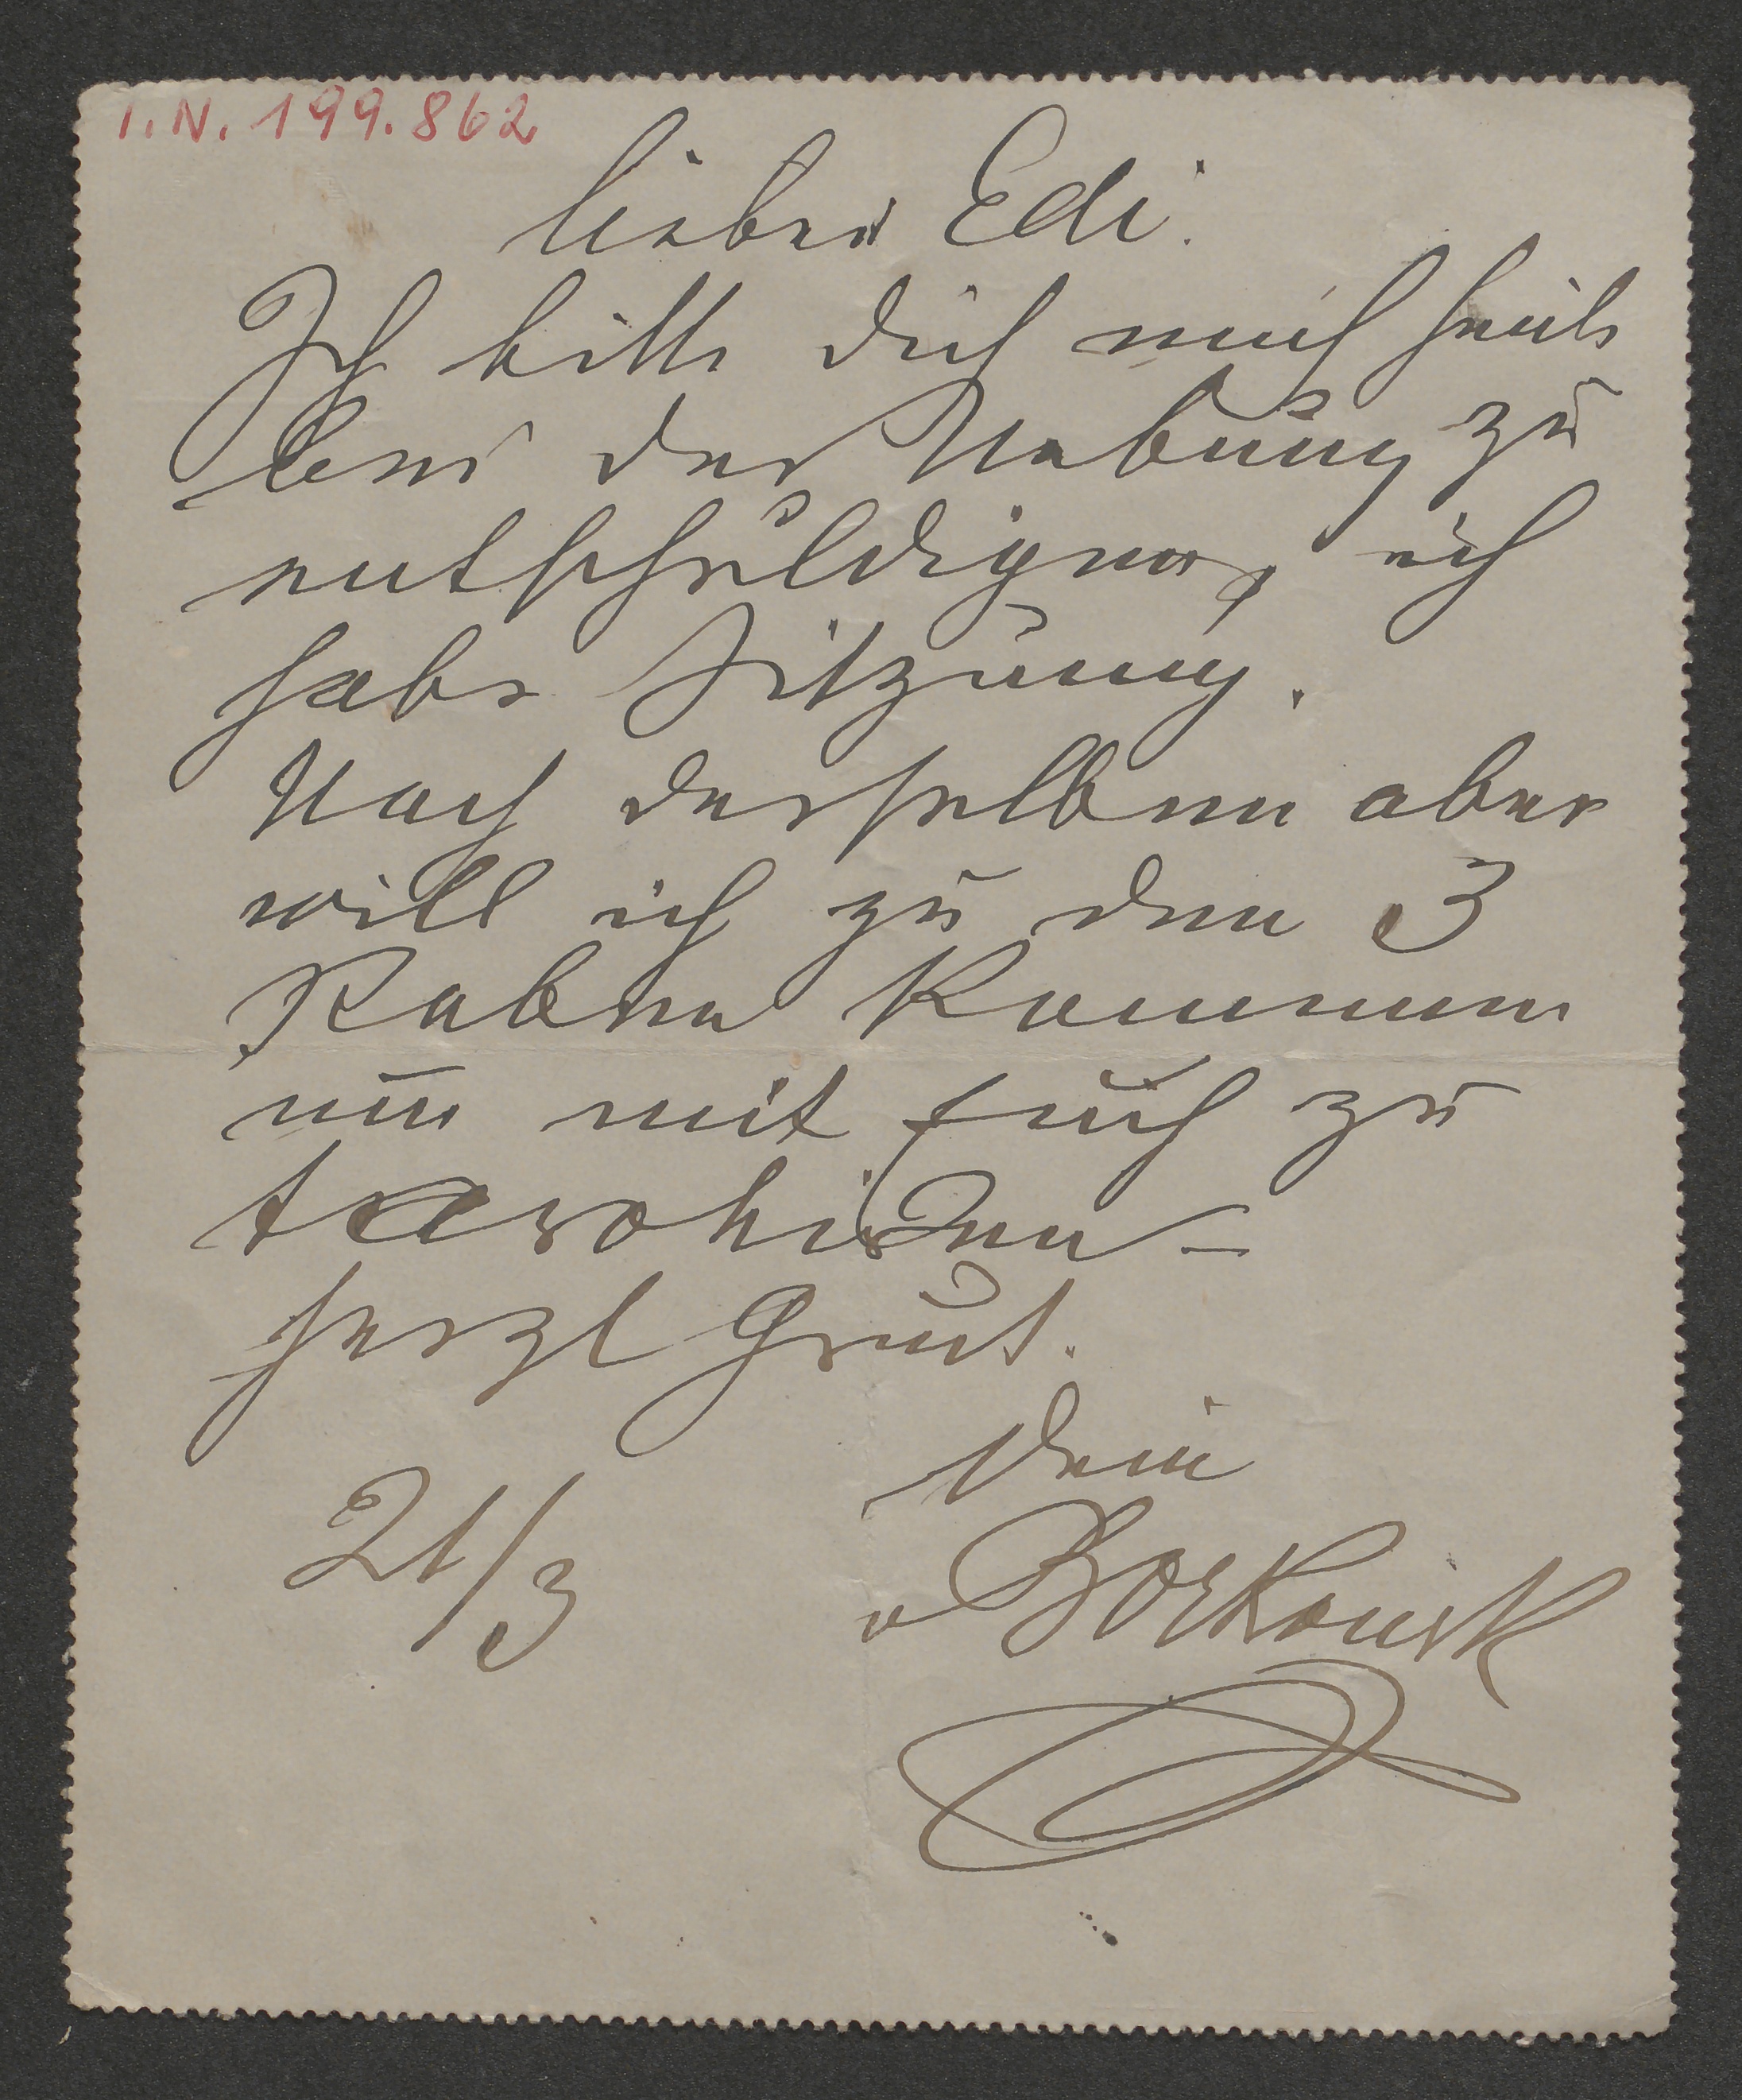 I. N. 199.862
lieber Edi.
Ich bitte dich mich heute
bei der Uebung zu
entschuldigen, ich
habe Sitzung.
Nach derselben aber
will ich zu den 3
Raben kommen
um mit Euch zu
tarokiren –
herzl Gruß.
Dein
v Borkowsk
21/3